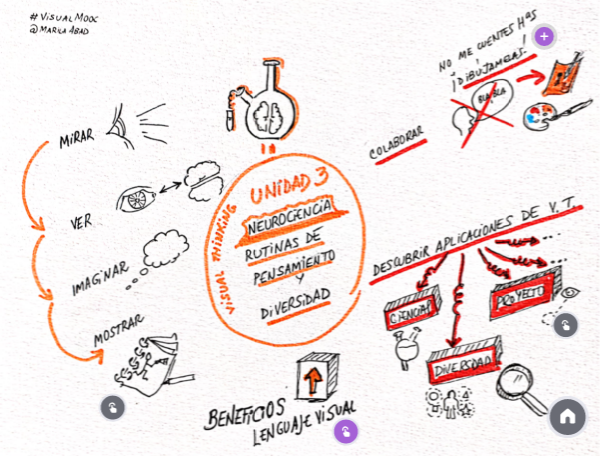 #VISUALMOOC
@MARILA ABAD
MIRAR
VER
IMAGINAR
MOSTRAR
VISUAL THINKING
UNIDAD 3
NEUROCIENCIA
RUTINAS DE
PENSAMIENTO
Y
DIVERSIDAD
BENEFICIOS
LENGUAJE VISUAL
NO ME CUENTES Has
¡DIBÚJAMELAS!
BLA, BLA
COLABORAR
DESCUBRIR APLICACIONES DE V.T.
...
...
CIENCIAS
PROYECTO
DIVERSIDAD